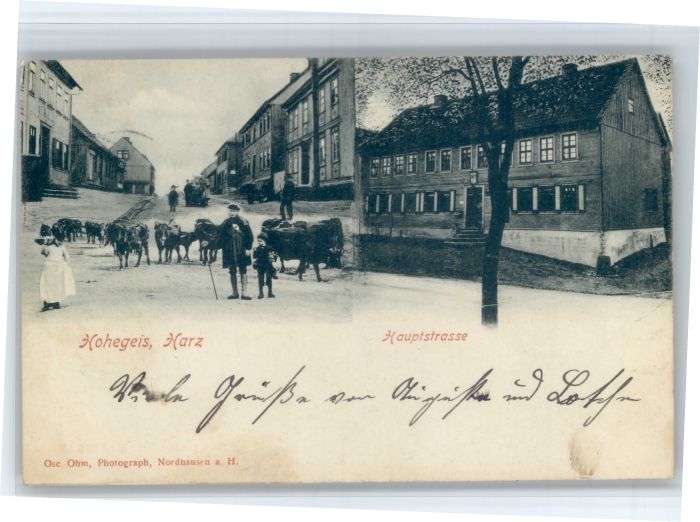 Hohegeis, Harz
Hauptstrasse
Viele Grüße von Auguste und Lotche
Osc. Ohm, Photograph, Nordhausen a. H.